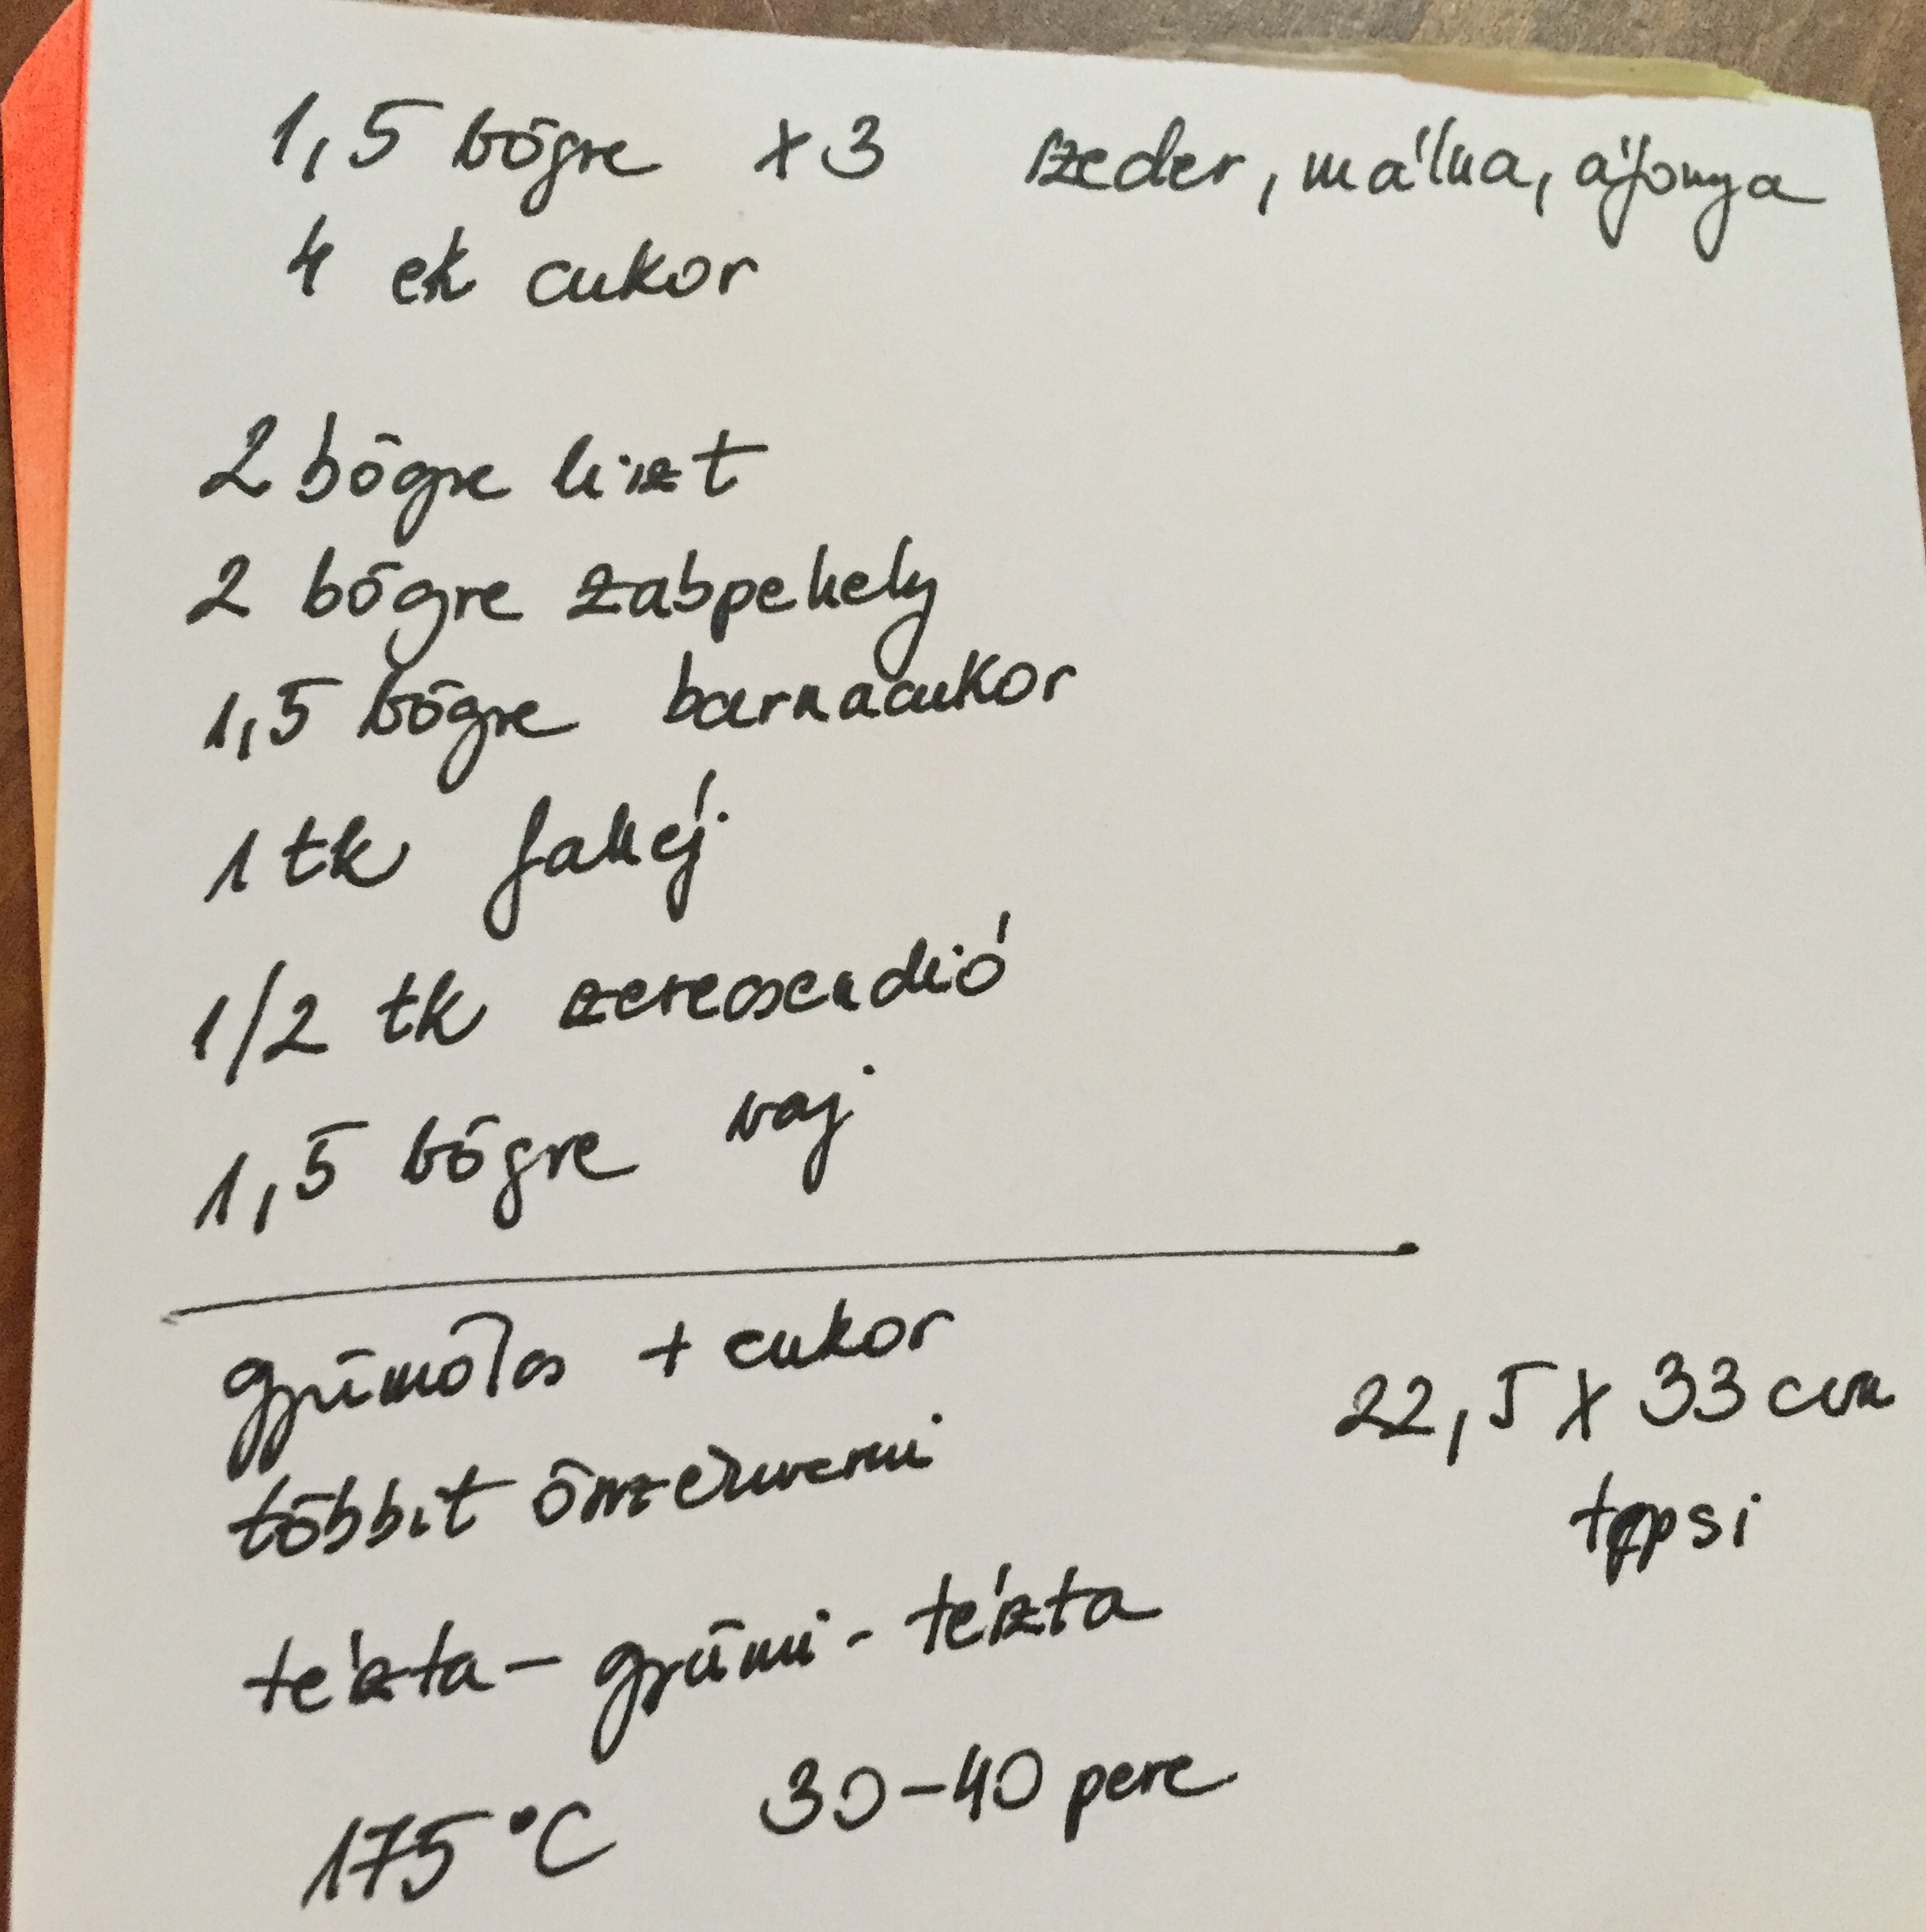 1,5 bögre x3 szeder, málna, áfonya
4 ek cukor
2 bögre liszt
2 bögre zabpehely
1,5 bögre barnacukor
1 tk fahéj
1/2 tk szerecsendió
1,5 bögre vaj
gyümölcs + cukor
többit összekeverni
22,5 x 33 cm
tepsi
tészta - gyümi - tészta
175 °C 30-40 perc